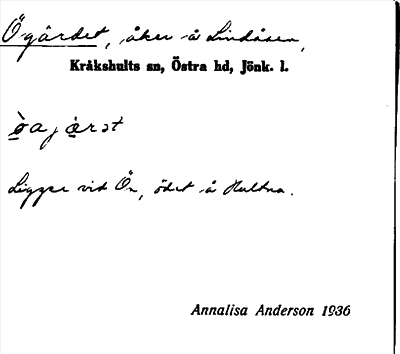 Ögärdet, åker å Lindåsen,
Kråkshults sn, Östra hd, Jönk. l.
Ligger vid Ön, ödet å Hultna.
Annalisa Anderson 1936